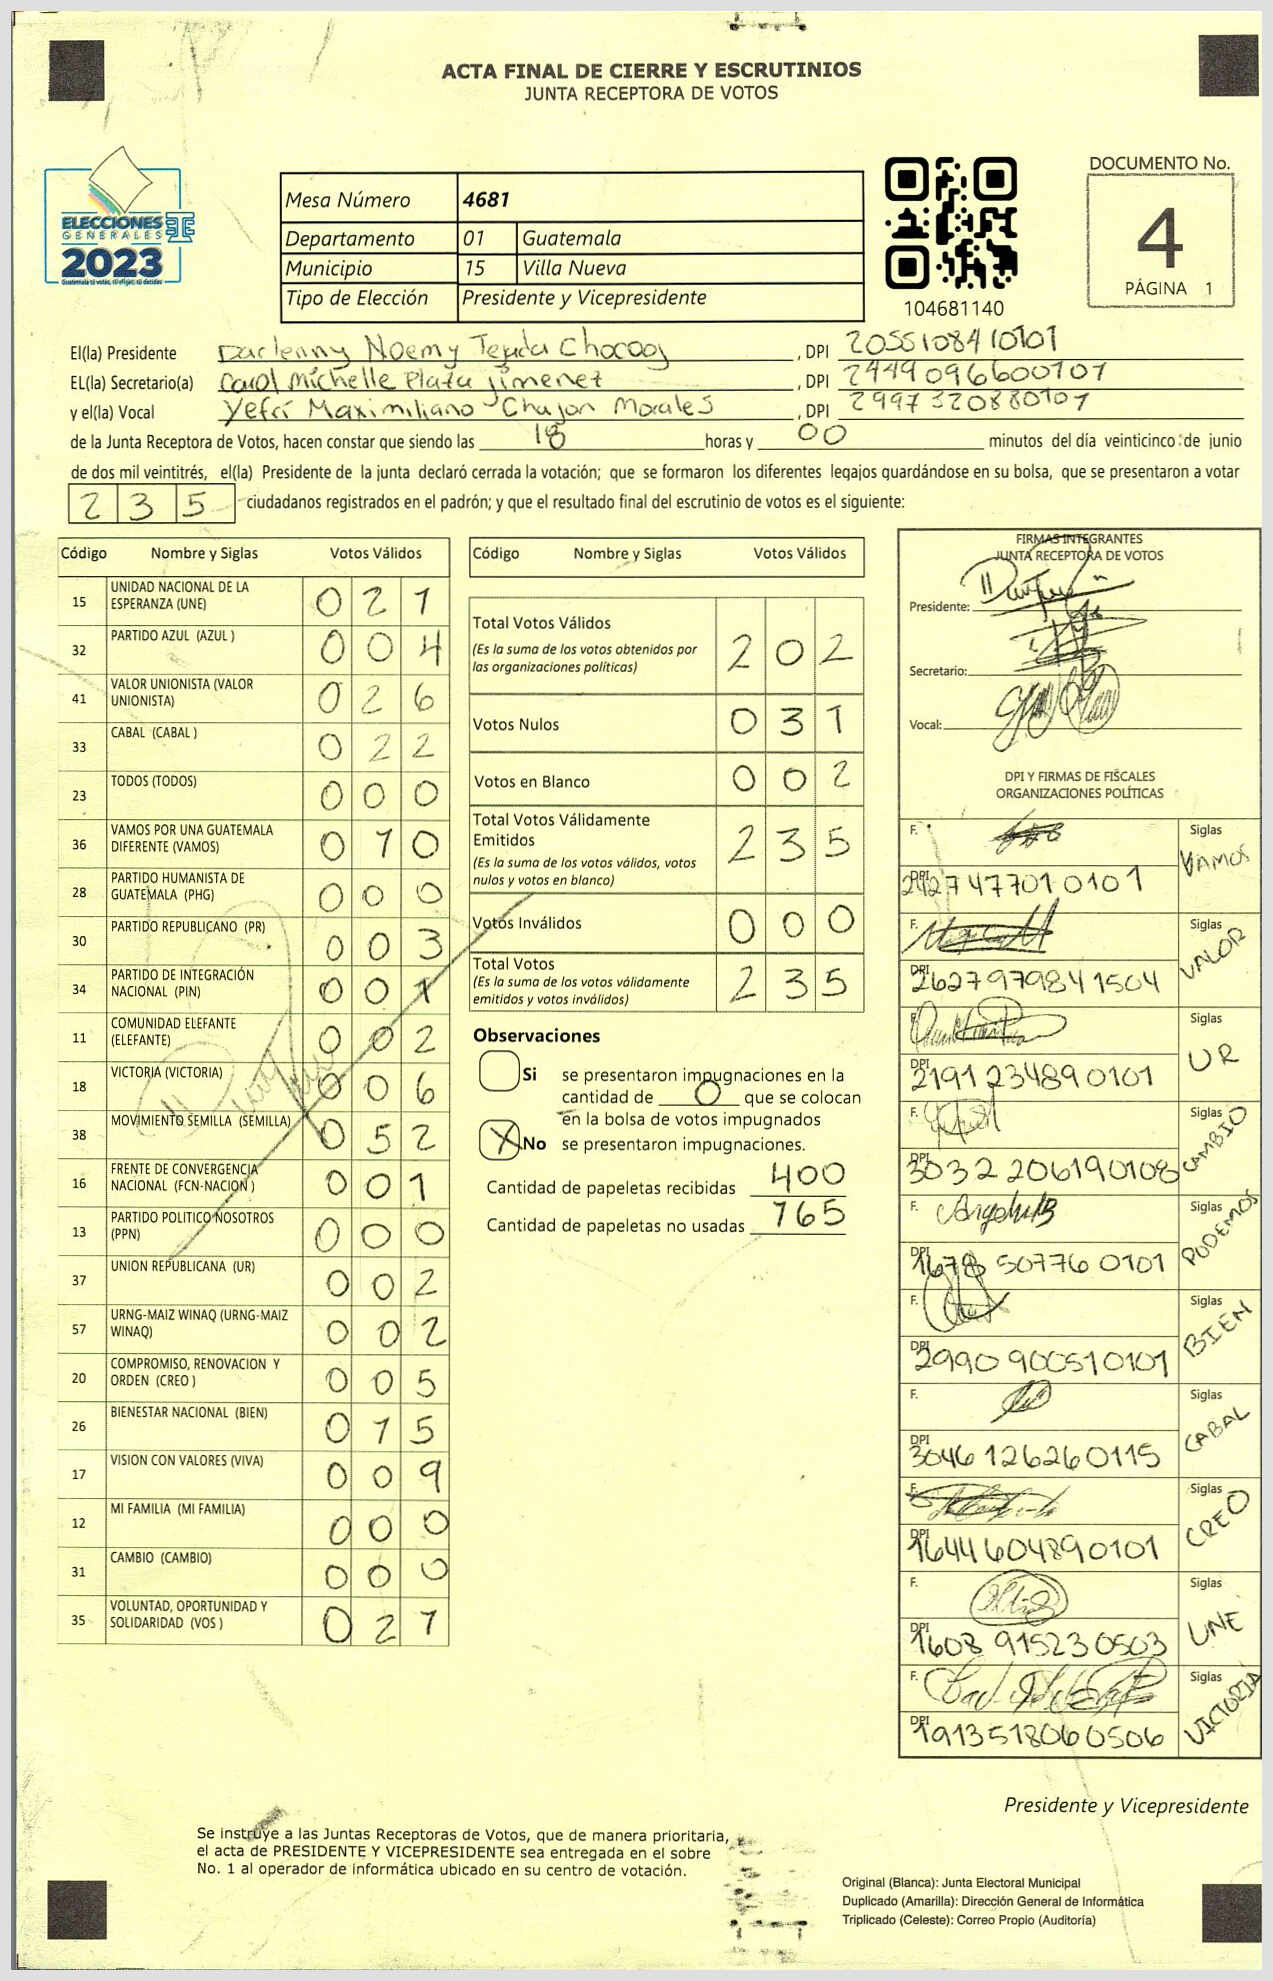 ACTA FINAL DE CIERRE Y ESCRUTINIOS
JUNTA RECEPTORA DE VOTOS
ELECCIONES
GENERALES
2023
Mesa Número 4681
Departamento 01 Guatemala
Municipio 15 Villa Nueva
Tipo de Elección Presidente y Vicepresidente
104681140
DOCUMENTO No.
4
PÁGINA 1
El(la) Presidente Darlenny Noemy Tejada Chocooj, DPI 2055108410101
EL(la) Secretario(a) Carol Michelle Plata Jimenez, DPI 2449096600101
y el(la) Vocal Yefri Maximiliano Chajon Morales, DPI 2997320880101
de la Junta Receptora de Votos, hacen constar que siendo las 18 horas y 00 minutos del día veinticinco de junio
de dos mil veintitrés, el(la) Presidente de la junta declaró cerrada la votación; que se formaron los diferentes legajos guardándose en su bolsa, que se presentaron a votar
235 ciudadanos registrados en el padrón; y que el resultado final del escrutinio de votos es el siguiente:
Código Nombre y Siglas Votos Válidos
15 UNIDAD NACIONAL DE LA ESPERANZA (UNE) 021
32 PARTIDO AZUL (AZUL ) 004
41 VALOR UNIONISTA (VALOR UNIONISTA) 026
33 CABAL (CABAL ) 022
23 TODOS (TODOS) 000
36 VAMOS POR UNA GUATEMALA DIFERENTE (VAMOS) 010
28 PARTIDO HUMANISTA DE GUATEMALA (PHG) 000
30 PARTIDO REPUBLICANO (PR) 003
34 PARTIDO DE INTEGRACIÓN NACIONAL (PIN) 001
11 COMUNIDAD ELEFANTE (ELEFANTE) 002
18 VICTORIA (VICTORIA) 006
38 MOVIMIENTO SEMILLA (SEMILLA) 052
16 FRENTE DE CONVERGENCIA NACIONAL (FCN-NACION ) 001
13 PARTIDO POLITICO NOSOTROS (PPN) 000
37 UNION REPUBLICANA (UR) 002
57 URNG-MAIZ WINAQ (URNG-MAIZ WINAQ) 002
20 COMPROMISO, RENOVACION Y ORDEN (CREO ) 005
26 BIENESTAR NACIONAL (BIEN) 015
17 VISION CON VALORES (VIVA) 009
12 MI FAMILIA (MI FAMILIA) 000
31 CAMBIO (CAMBIO) 000
35 VOLUNTAD, OPORTUNIDAD Y SOLIDARIDAD (VOS ) 021
Código Nombre y Siglas Votos Válidos
Total Votos Válidos 202
(Es la suma de los votos obtenidos por
las organizaciones políticas)
Votos Nulos 031
Votos en Blanco 002
Total Votos Válidamente
Emitidos 235
(Es la suma de los votos válidos, votos
nulos y votos en blanco)
Votos Inválidos 000
Total Votos 235
(Es la suma de los votos válidamente
emitidos y votos inválidos)
Observaciones
Si se presentaron impugnaciones en la
cantidad de 0 que se colocan
en la bolsa de votos impugnados
X No se presentaron impugnaciones.
Cantidad de papeletas recibidas 400
Cantidad de papeletas no usadas 165
FIRMAS INTEGRANTES
JUNTA RECEPTORA DE VOTOS
Presidente:
Secretario:
Vocal:
DPI Y FIRMAS DE FISCALES
ORGANIZACIONES POLÍTICAS
F. Siglas VAMOS
DPI 2427477010101
F. Siglas VALOR
DPI 2627979841504
F. Siglas UR
DPI 2191234890101
F. Siglas CAMBIO
DPI 3032206190108
F. Siglas PODEMOS
DPI 1678507760101
F. Siglas BIEN
DPI 2990900510101
F. Siglas CABAL
DPI 3046126260115
F. Siglas CREO
DPI 1644604890101
F. Siglas UNE
DPI 1608915230503
F. Siglas VICTORIA
DPI 1913518060506
Presidente y Vicepresidente
Se instruye a las Juntas Receptoras de Votos, que de manera prioritaria,
el acta de PRESIDENTE Y VICEPRESIDENTE sea entregada en el sobre
No. 1 al operador de informática ubicado en su centro de votación.
Original (Blanca): Junta Electoral Municipal
Duplicado (Amarilla): Dirección General de Informática
Triplicado (Celeste): Correo Propio (Auditoría)